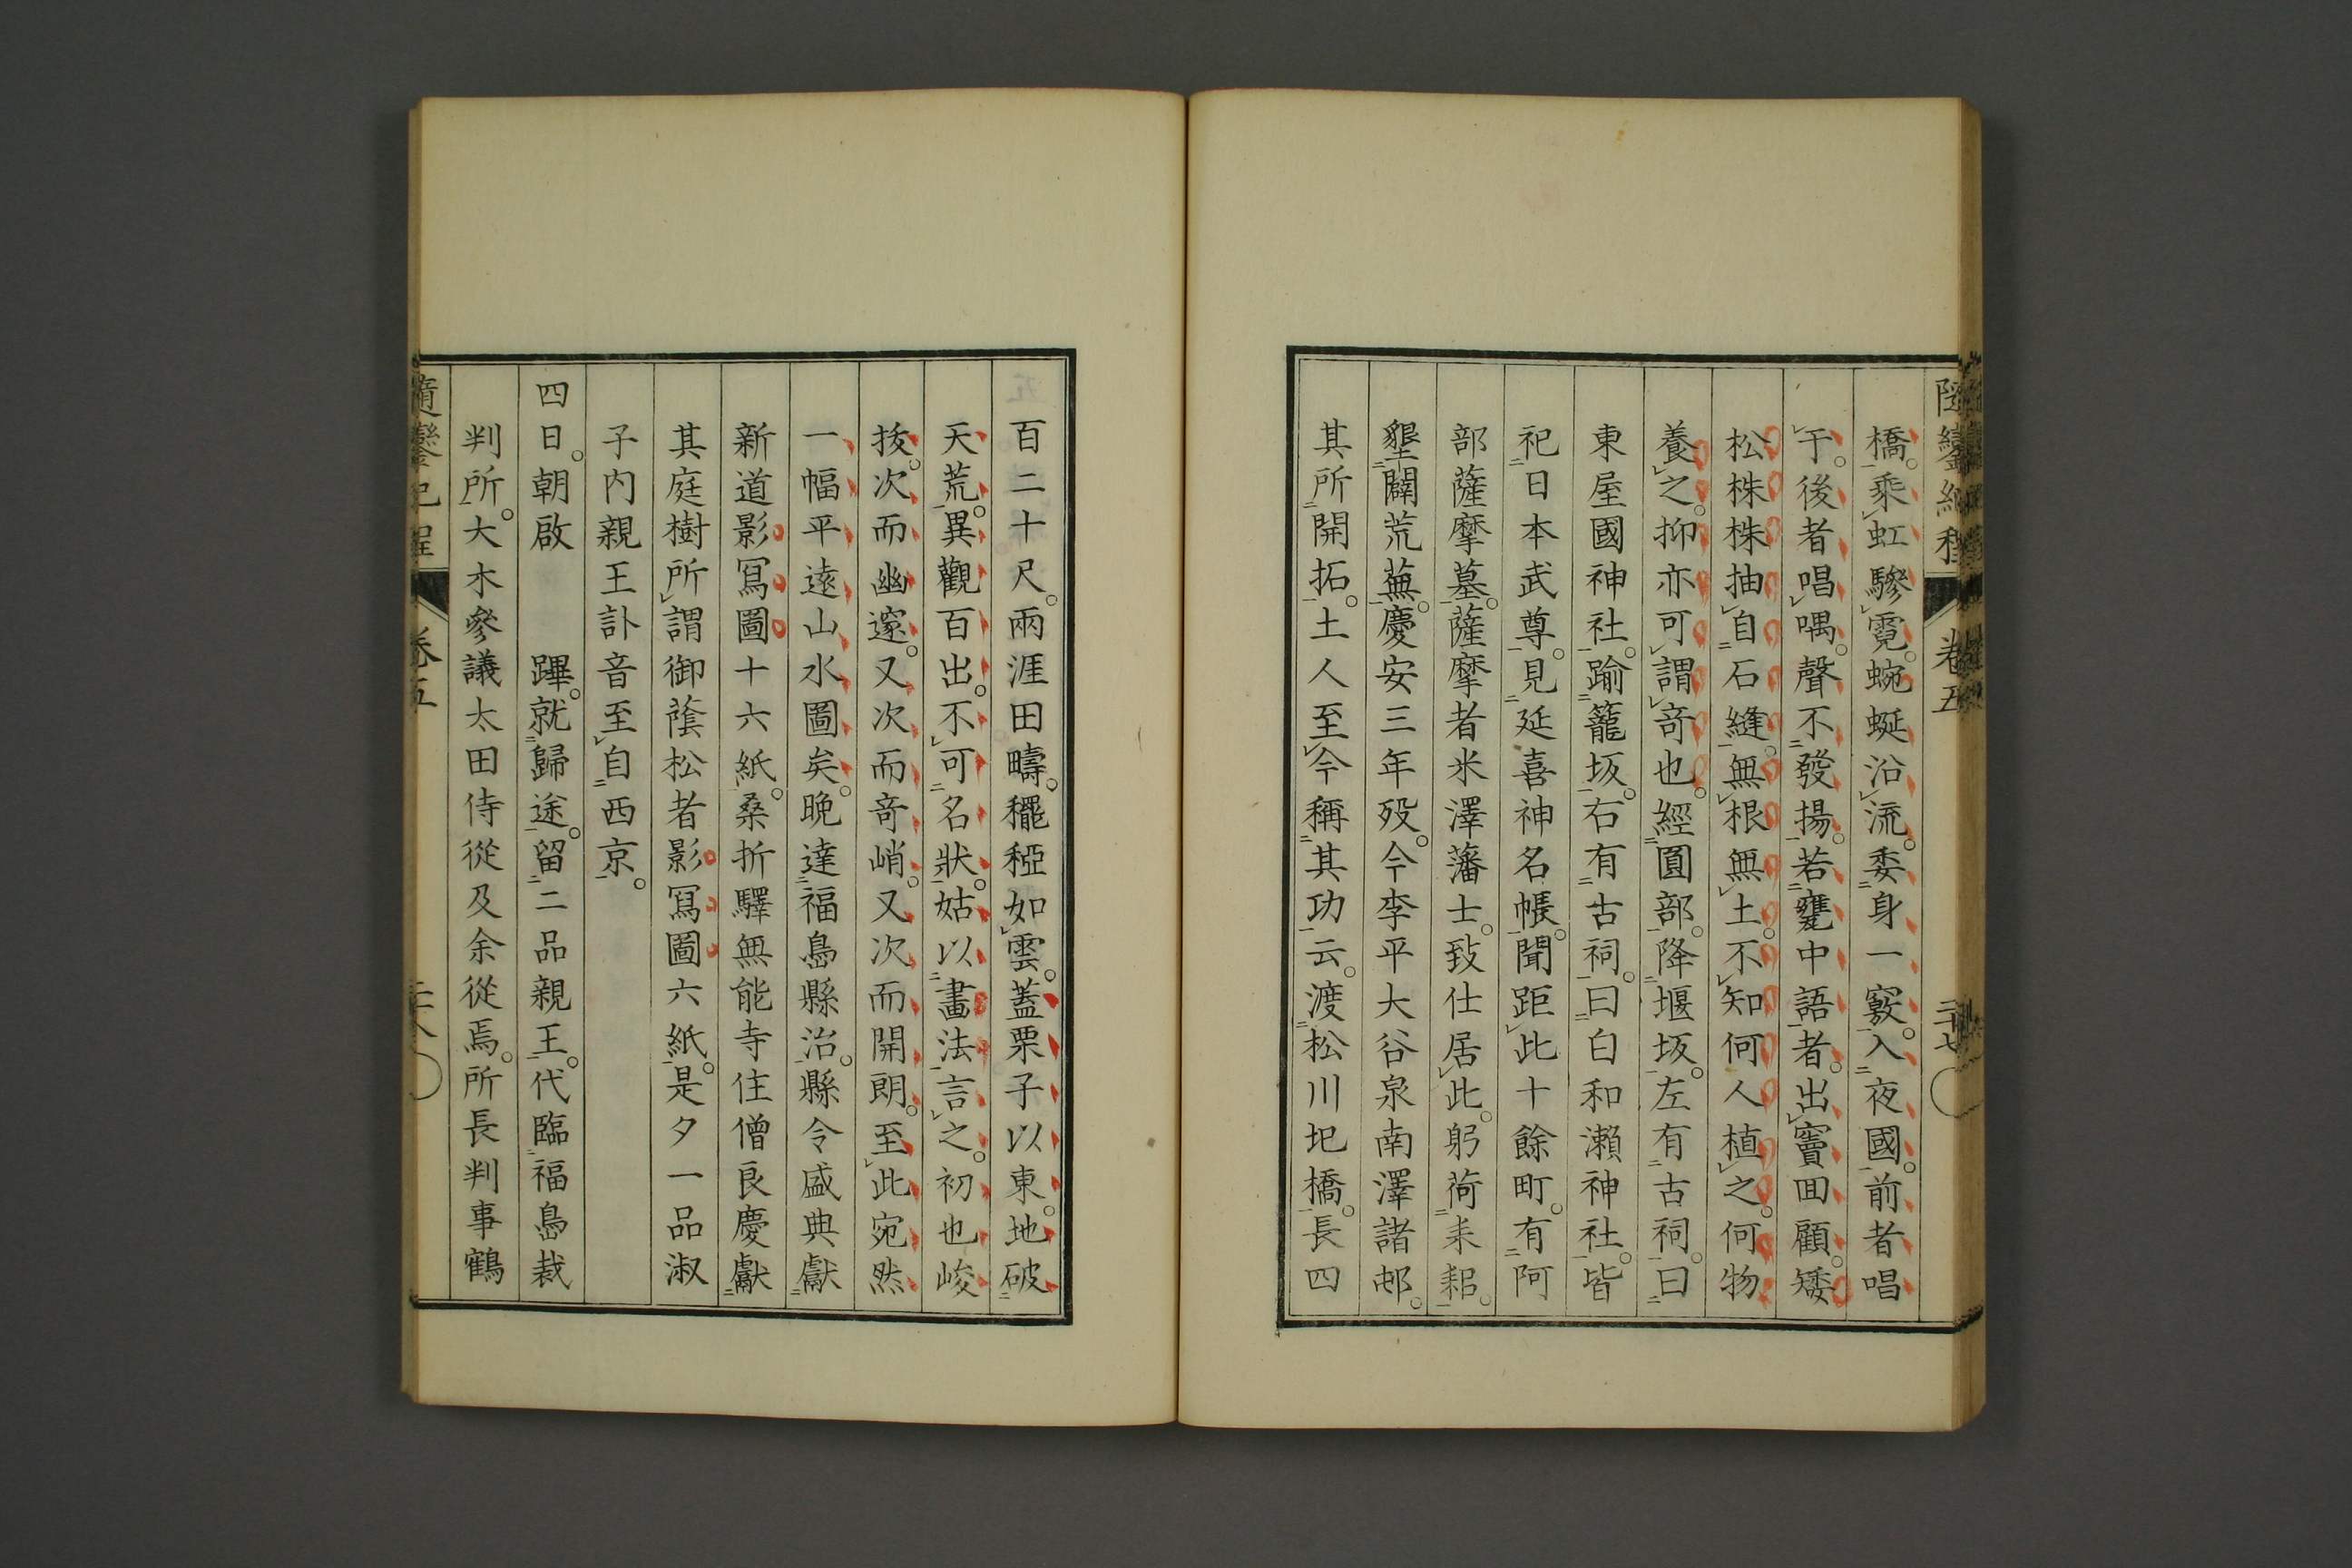 隨鑾紀程 卷五 二十七
橋。乘虹驂霓。蜿蜒沿流。委身一竅。入夜國。前者唱
于。後者唱喁。聲不發揚。若甕中語者。出竇回顧。矮
松株株抽自石縫。無根無土。不知何人植之。何物
養之。抑亦可謂竒也。經圓部。降堰坂。左有古祠。曰
東屋國神社。踰籠坂。右有古祠。曰白和瀨神社。皆
祀日本武尊。見延喜神名帳。聞距此十餘町。有阿
部薩摩墓。薩摩者米澤藩士。致仕居此。躬荷耒耜。
墾闢荒蕪。慶安三年歿。今李平大谷泉南澤諸邨。
其所開拓。土人至今稱其功云。渡松川圯橋。長四
百二十尺。兩涯田疇。䆉稏如雲。蓋栗子以東。地破
天荒。異觀百出。不可名狀。姑以畫法言之。初也峻
拔。次而幽邃。又次而竒峭。又次而開朗。至此宛然
一幅平遠山水圖矣。晚達福島縣治。縣令盛典獻
新道影寫圖十六紙。桑折驛無能寺住僧良慶獻
其庭樹所謂御蔭松者影寫圖六紙。是夕一品淑
子內親王訃音至自西京。
四日。朝啟　蹕。就歸途。留二品親王。代臨福島裁
判所。大木參議太田侍從及余從焉。所長判事鶴
隨鑾紀程 卷五 二十八